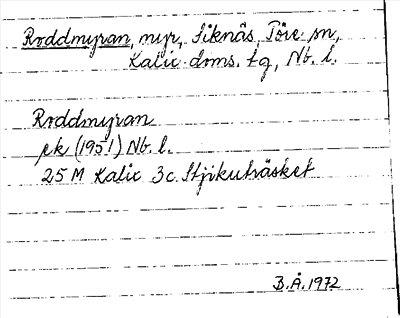 Roddmyran, myr, Siknäs, Töre sn,
Kalix doms. tg, Nb. l.
Roddmyran
ek (1951) Nb. l.
25 M Kalix 3c. Stjikuträsket
B.Å. 1972